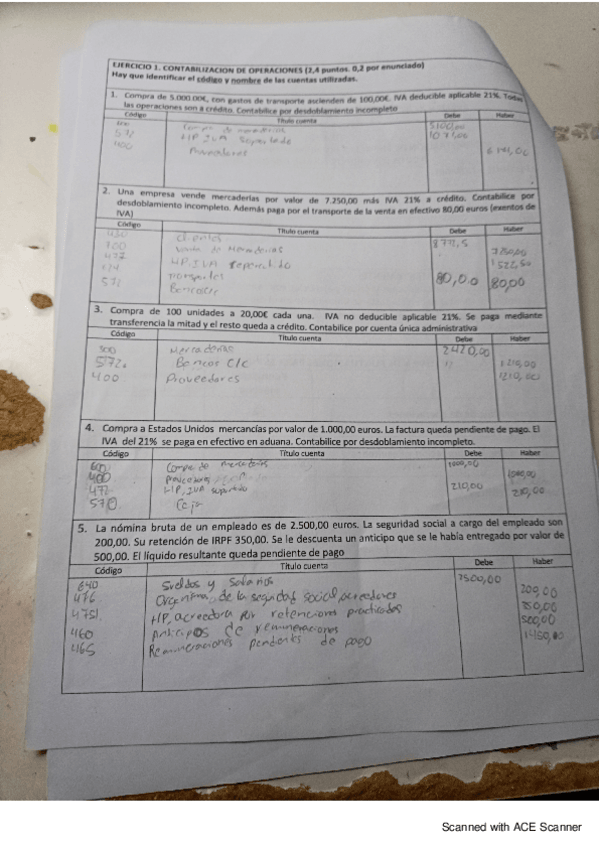 EJERCICIO 1. CONTABILIZACION DE OPERACIONES (2,4 puntos. 0,2 por enunciado)
Hay que identificar el código y nombre de las cuentas utilizadas.
1. Compra de 5.000.00€, con gastos de transporte ascienden de 100,00€. IVA deducible aplicable 21%. Todas
las operaciones son a crédito. Contabilice por desdoblamiento incompleto
Código Título cuenta Debe Haber
600 Compra de mercaderias 5100,00
HP IVA Soportado 1071,00
400 Proveedores
2. Una empresa vende mercaderías por valor de 7.250,00 más IVA 21% a crédito. Contabilice por
desdoblamiento incompleto. Además paga por el transporte de la venta en efectivo 80,00 euros (exentos de
IVA)
Código Título cuenta Debe Haber
430 Clientes
Venta de Mercaderias 7250,00
477 HP IVA repercutido 1522,50
80,00
57 80,00
3. Compra de 100 unidades a 20,00€ cada una. IVA no deducible aplicable 21%. Se paga mediante
transferencia la mitad y el resto queda a crédito. Contabilice por cuenta única administrativa
Código Título cuenta Debe Haber
300 Mercaderias 2420,00
572. Bancos C/C 1210,00
400 Proveedores 1210,00
4. Compra a Estados Unidos mercancías por valor de 1.000,00 euros. La factura queda pendiente de pago. El
IVA del 21% se paga en efectivo en aduana. Contabilice por desdoblamiento incompleto.
Código Título cuenta Debe Haber
600 Compra de mercaderias 1000,00
400 Proveedores 1000,00
472 HP, IVA soportado 210,00
570 Caja 210,00
5. La nómina bruta de un empleado es de 2.500,00 euros. La seguridad social a cargo del empleado son
200,00. Su retención de IRPF 350,00. Se le descuenta un anticipo que se le había entregado por valor de
500,00. El líquido resultante queda pendiente de pago
Código Título cuenta Debe Haber
640 Sueldos y Salarios 2500,00
476 Organismo de la seguridad social acreedores 200,00
4751 HP, acreedora por retenciones practicadas 350,00
460 Anticipos de remuneraciones 500,00
465 Remuneraciones pendientes de pago 1450,00
Scanned with ACE Scanner